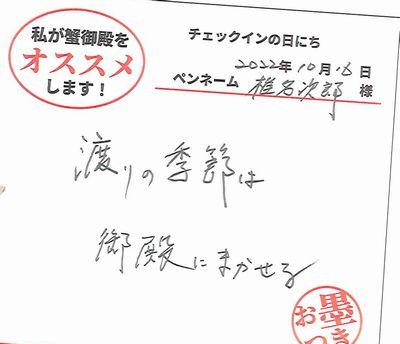 私が蟹御殿を
オススメ
します！
チェックインの日にち
2022年10月16日
ペンネーム 椎名次郎 様
渡りの季節は
御殿にまかせる
お墨つき